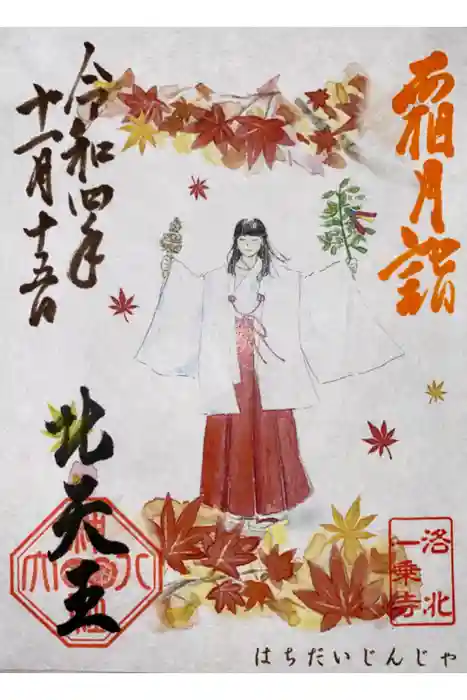 霜月詣
令和四年
十一月十五日
北天王
洛北
一乗寺
はちだいじんじゃ